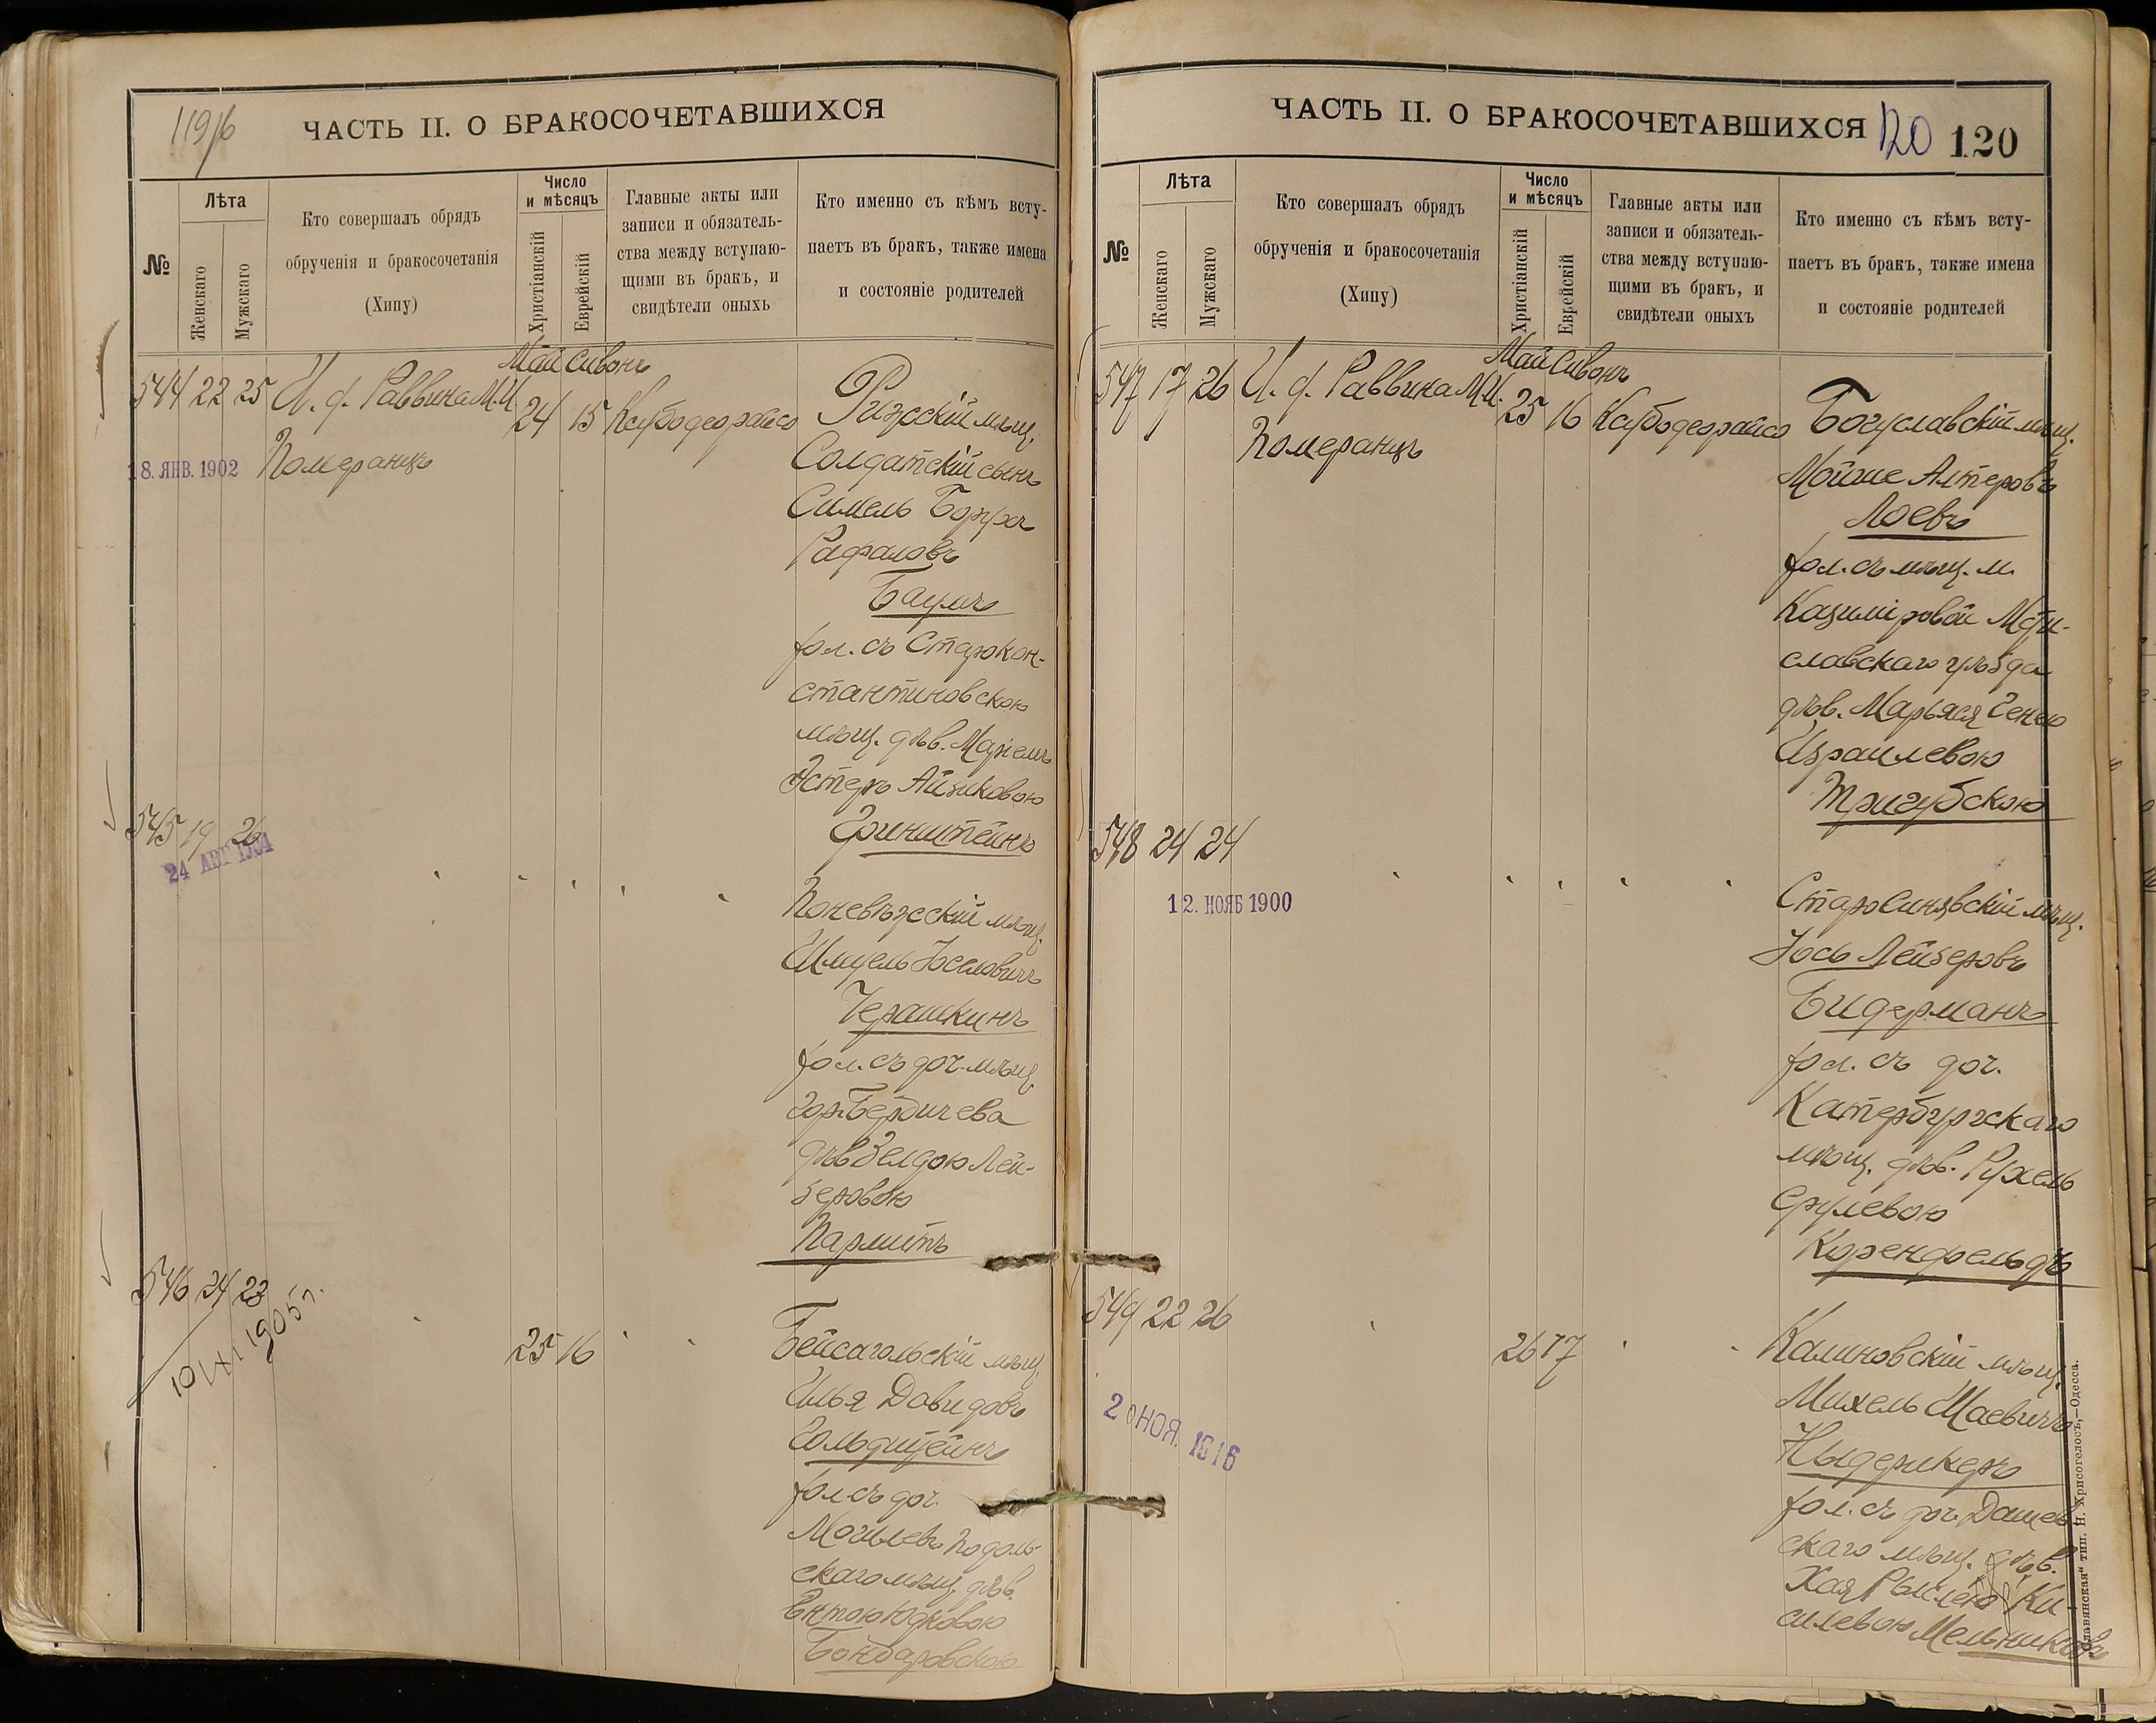 119/б
ЧАСТЬ II. О БРАКОСОЧЕТАВШИХСЯ
№
Лѣта
Женскаго
Мужскаго
Кто совершалъ обрядъ
обрученія и бракосочетанія
(Хипу)
Число
и мѣсяцъ
Христіанскій
Еврейскій
Главные акты или
записи и обязатель-
ства между вступаю-
щими въ бракъ, и
свидѣтели оныхъ
Кто именно съ кѣмъ всту-
паетъ въ бракъ, также имена
и состояніе родителей
Май Сивонъ
544 22 25 И. ф. Раввина М.И.
Померанцъ
24 15 Каубодеорайсо
18. ЯНВ. 1902
Рижскій мѣщ.
Солдатскій сынъ
Симель Борухъ
Рафаловъ
Баумъ
хол. съ Старокон-
стантиновскою
мѣщ. дѣв. Маріемъ
Эстеръ Айзиковою
Гринштейнъ
545 19 26
24 АВГ
Поневѣжскій мѣщ.
Шмуель Іоселовичъ
Черашкинъ
хол. съ доч. мѣщ.
гор. Бердичева
дѣв Зелдою Лей-
зеровою
Пармитъ
546 24 23
10/XI 1905 г.
25 16
Бейсагольскій мѣщ.
Илья Давидовъ
Гольдштейнъ
хол съ доч.
Могилевъ Подоль-
скаго мѣщ. дѣв.
Ентою Юдковою
Бондаровскою
ЧАСТЬ II. О БРАКОСОЧЕТАВШИХСЯ
120
120
№
Лѣта
Женскаго
Мужскаго
Кто совершалъ обрядъ
обрученія и бракосочетанія
(Хипу)
Число
и мѣсяцъ
Христіанскій
Еврейскій
Главные акты или
записи и обязатель-
ства между вступаю-
щими въ бракъ, и
свидѣтели оныхъ
Кто именно съ кѣмъ всту-
паетъ въ бракъ, также имена
и состояніе родителей
Май Сивонъ
547 17 26 И. ф. Раввина М.И.
Померанцъ
25 16 Каубодеорайсо
Богуславскій мѣщ.
Мойше Алтеровъ
Лоевъ
хол. съ мѣщ. м.
Казиміровой Мсти-
славскаго уѣзда
дѣв. Марьяся Генею
Израилевою
Тригубскою
548 24 24
12. НОЯБ 1900
Старосинявскій мѣщ.
Іось Лейзеровъ
Бидерманъ
хол. съ доч.
Катербургскаго
мѣщ. дѣв. Рухель
Срулевою
Коренфельдъ
549 22 26
20 НОЯ. 1916
26 17
Калиновскій мѣщ.
Михель Шаевичъ
Ныдерикеръ
хол. съ доч. Дашев-
скаго мѣщ. дѣв.
Хая Рыслею Ки-
силевою Мельниковъ
„Славянская“ тип. Н. Хрисогелосъ,—Одесса.